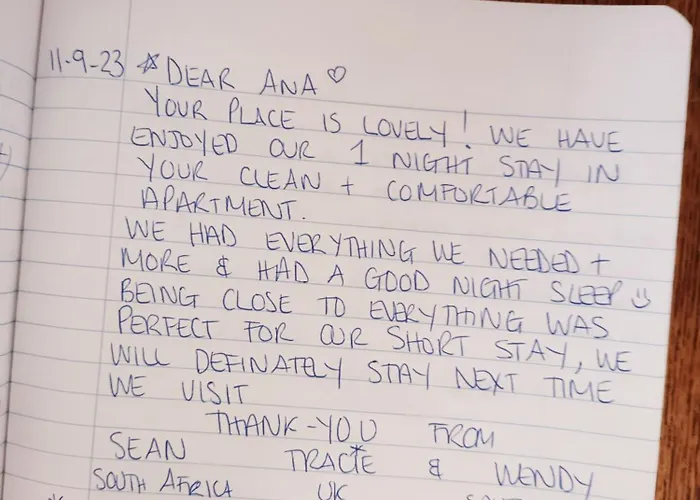 11-9-23 ☆ DEAR ANA ♡
YOUR PLACE IS LOVELY! WE HAVE
ENJOYED OUR 1 NIGHT STAY IN
YOUR CLEAN + COMFORTABLE
APARTMENT.
WE HAD EVERYTHING WE NEEDED +
MORE & HAD A GOOD NIGHT SLEEP ☺
BEING CLOSE TO EVERYTHING WAS
PERFECT FOR OUR SHORT STAY, WE
WILL DEFINATELY STAY NEXT TIME
WE VISIT
THANK-YOU FROM
SEAN TRACIE & WENDY
SOUTH AFRICA UK